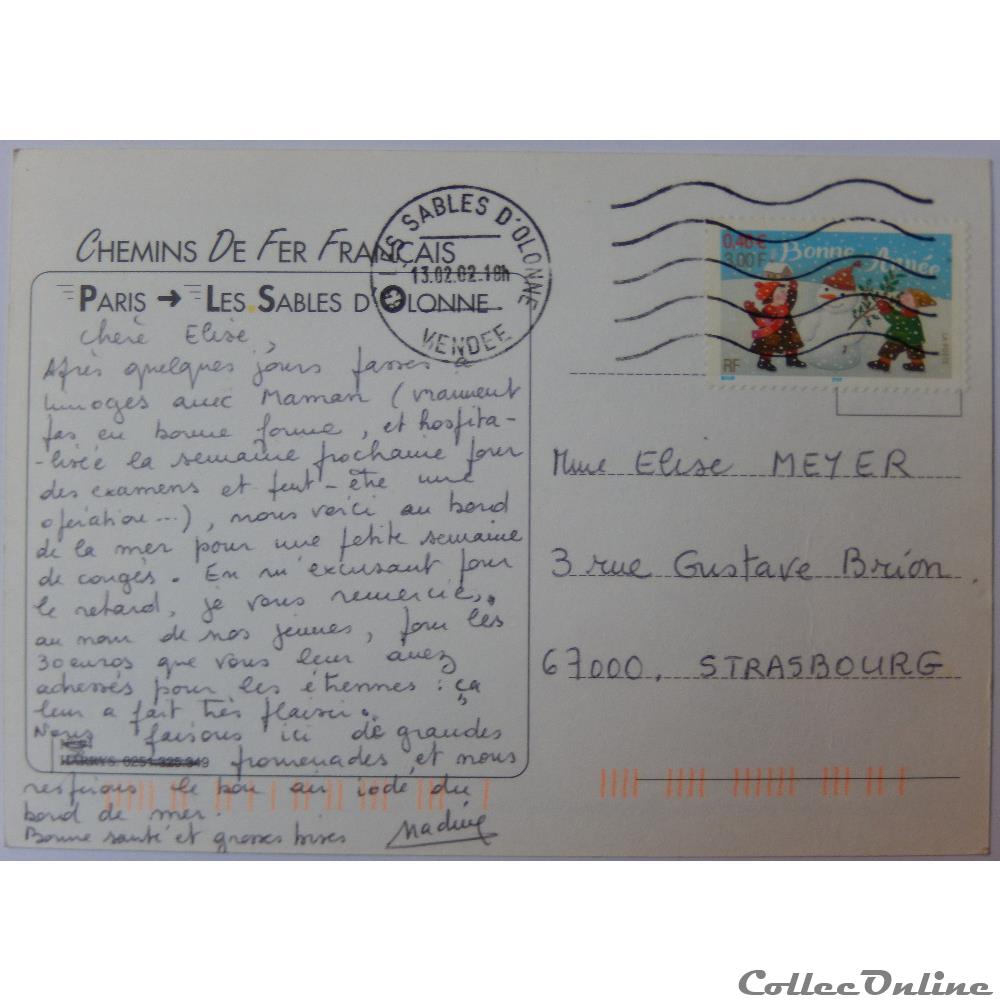 CHEMINS DE FER FRANÇAIS
PARIS → LES SABLES D'OLONNE
LES SABLES D'OLONNE
13.02.02.18h
VENDEE
0,46 €
3,00 F
Bonne Année
RF
LA POSTE
Chère Elise,
Après quelques jours passés à
Limoges avec Maman (vraiment
pas en bonne forme, et hospita-
-lisée la semaine prochaine pour
des examens et peut-être une
opération...), nous voici au bord
de la mer pour une petite semaine
de congés. En m'excusant pour
le retard, je vous remercie,
au nom de nos jeunes, pour les
30 euros que vous leur avez
adressés pour les étrennes : ça
leur a fait très plaisir.
Nous faisons ici de grandes
HARRYS 0251.323.949 promenades et nous
respirons le bon air iodé du
bord de mer.
Bonne santé et grosses bises Nadine
Mme Elise MEYER
3 rue Gustave Brion.
67000. STRASBOURG
CollecOnline